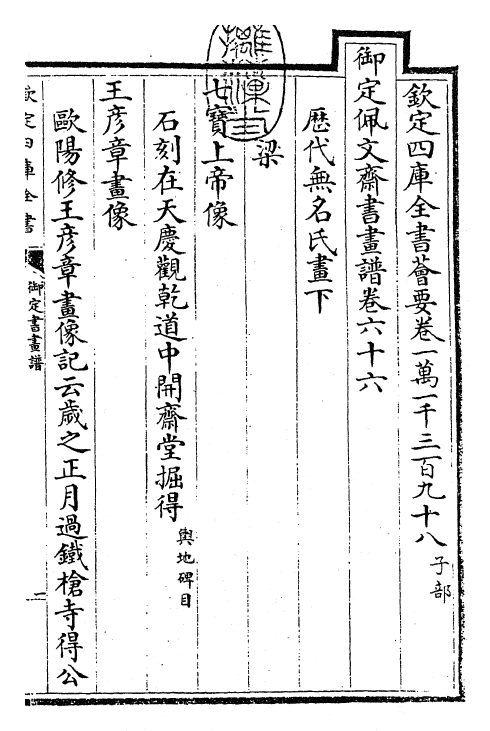 欽定四庫全書薈要卷一萬一千三百九十八 子部
御定佩文齋書畫譜卷六十六
歴代無名氏畫下
梁
七寶上帝像
石刻在天慶觀乾道中開齋堂掘得 輿地碑目
王彦章畫像
歐陽修王彦章畫像記云歲之正月過鐵槍寺得公
欽定四庫全書
御定書畫譜
一